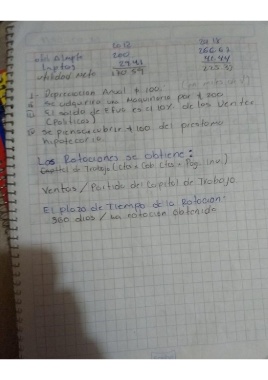 2012 2013
Util Simple 200 266.67
Imptos
Utilidad Neta
1- Depreciacion Anual $ 100.
Se adquirira una Maquinaria por $ 200
El saldo de Efvo es el 10% de las Ventas
(Politicas)
Se piensa cubrir $ 100 del prestamo
hipotecario.
Las Rotaciones se obtiene:
Capital de Trabajo (Ctas x Cob. Ctas x Pag. Inv.)
Ventas / Partida del Capital de Trabajo
El plazo de Tiempo de la Rotacion:
360 dias / La rotacion Obtenida